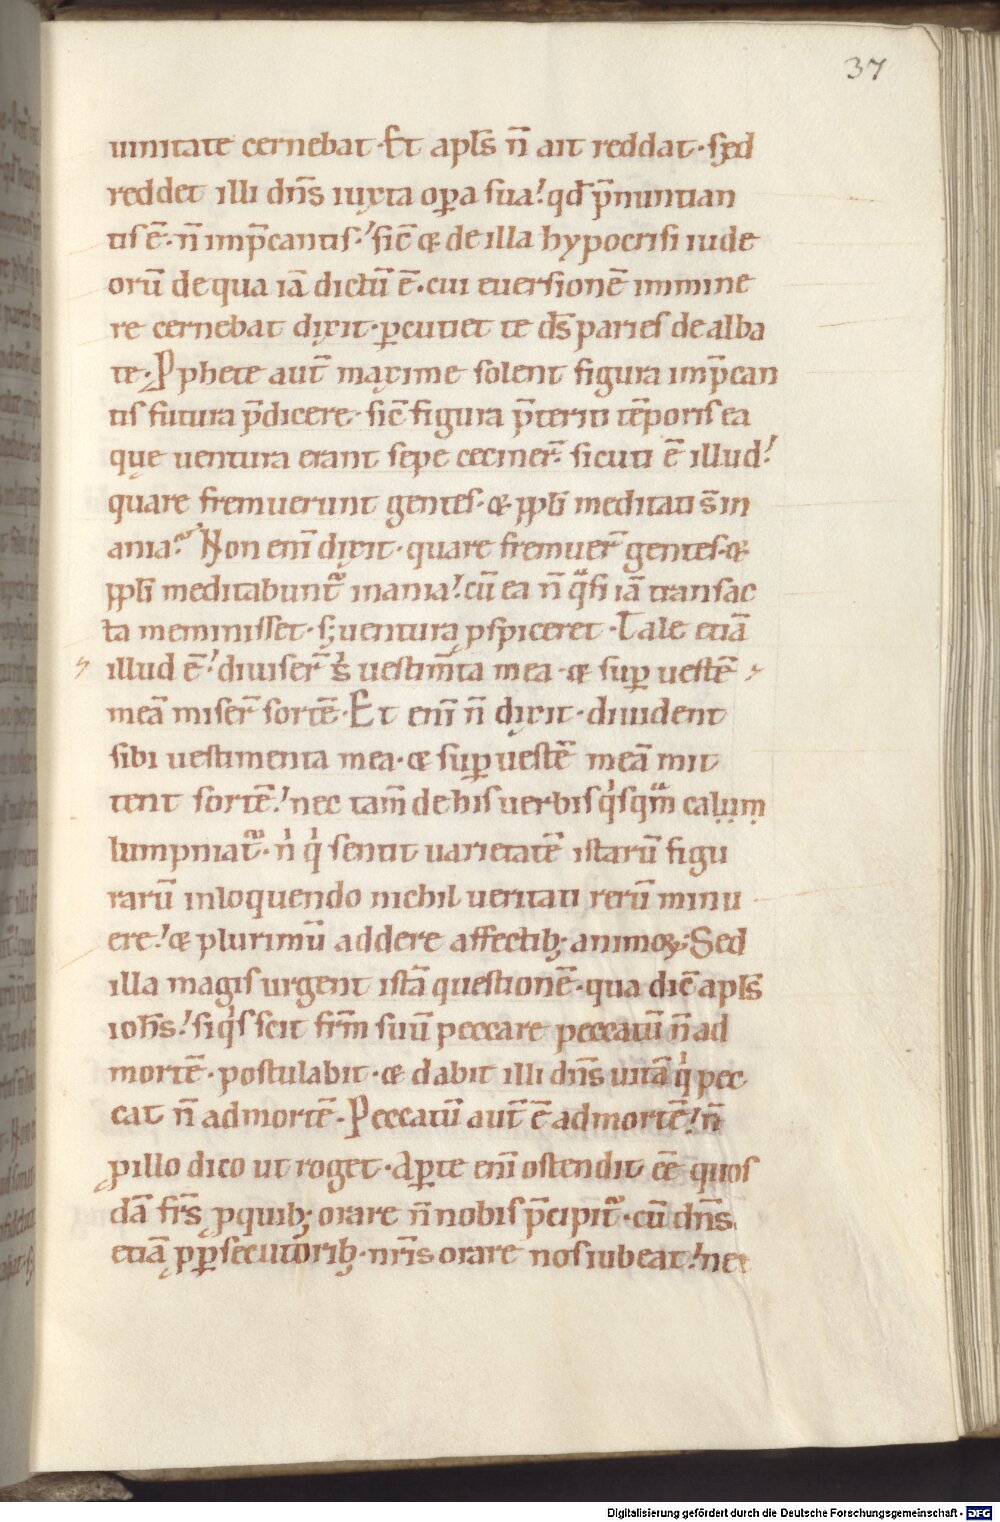 37
uinitate cernebat · Et apl̄s n̄ ait reddat · sed
reddet illi dn̄s iuxta op̱a sua! qd̄ p̄nuntian
tis ē · n̄ imp̄cantis! sic̄ & de illa hypocrisi iude
orū de qua iā dictū ē · cui euersionē immine
re cernebat dixit · ꝑcutiet te ds̄ paries dealba
te · Ꝓphete aut̄ maxime solent figura imp̄can
tis futura p̄dicere · sic̄ figura p̄teriti tēporis ea
quę uentura erant sepe ceciner̄ · sicuti ē illud!
quare fremuerunt gentes · & ꝓpl̄i meditati s̄ in
ania? Non eni̅ dixit · quare fremuer̄ gentes · &
ꝓpl̄i meditabunt᷑ inania! cū ea n̄ qͣsi iā transac
ta meminisset · s; uentura ꝓspiceret · Tale etiā
illud ē! diuiser̄ s᷑ uestim̄ta mea · & suꝑ uestē
meā miser̄ sortē · Et eni̅ n̄ dixit · diuident
sibi uestimenta mea · & suꝑ uestē meā mit
tent sortē! nec tam̄ de his uerbis qͥsqͣm calum
lumpniat᷑ · nͥ qͥ sentit uarietatē istarū figu
rarū in loquendo nichil ueritati rerū minu
ere! & plurimū addere affectib; animoꝝ · Sed
illa magis urgent istā questionē · qua dic̄ apl̄s
ioh̄s! si qͥs scit fr̄m suū peccare peccatū n̄ ad
mortē · postulabit · & dabit illi dn̄s uitā qͥ pec
cat n̄ ad mortē · Peccatū aut̄ ē ad mortē! n̄
ꝓ illo dico ut roget · Aꝑte eni̅ ostendit eē quos
dā fr̄s ꝓ quib; orare n̄ nobis p̄cipit᷑ · cū dn̄s
etiā ꝓ ꝑsecutorib; nr̄is orare nos iubeat! nec
Digitalisierung gefördert durch die Deutsche Forschungsgemeinschaft - DFG